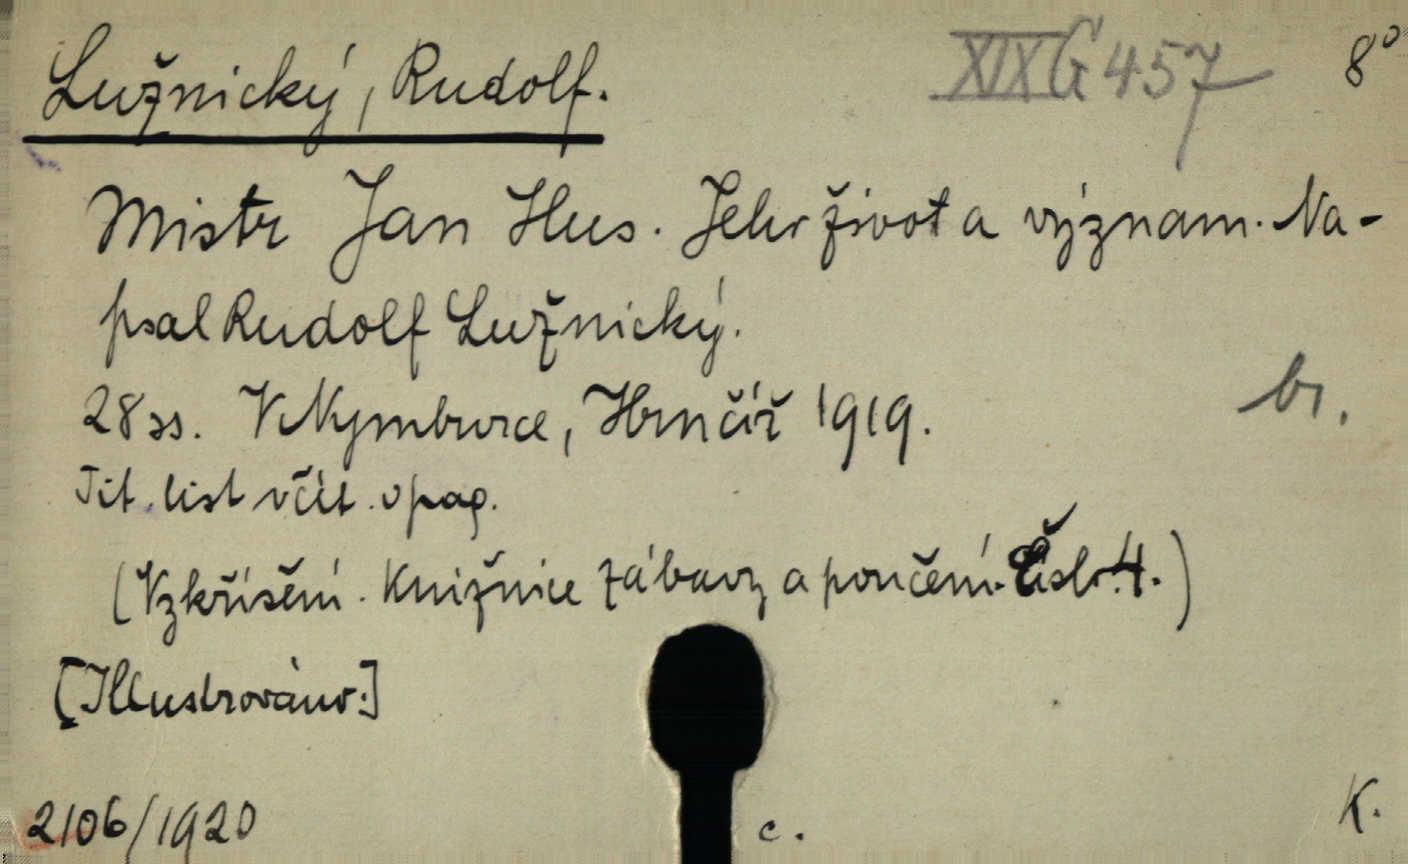 Lužnický, Rudolf. XIX G 457 8°
Mistr Jan Hus. Jeho život a význam. Na-
psal Rudolf Lužnický.
28 ss. V Nymburce, Hrnčíř 1919. br.
Tit. list včít. v pag.
(Vzkříšení. Knižnice zábavy a poučení. Číslo 4.)
[Illustrováno.]
2106/1920 c. K.